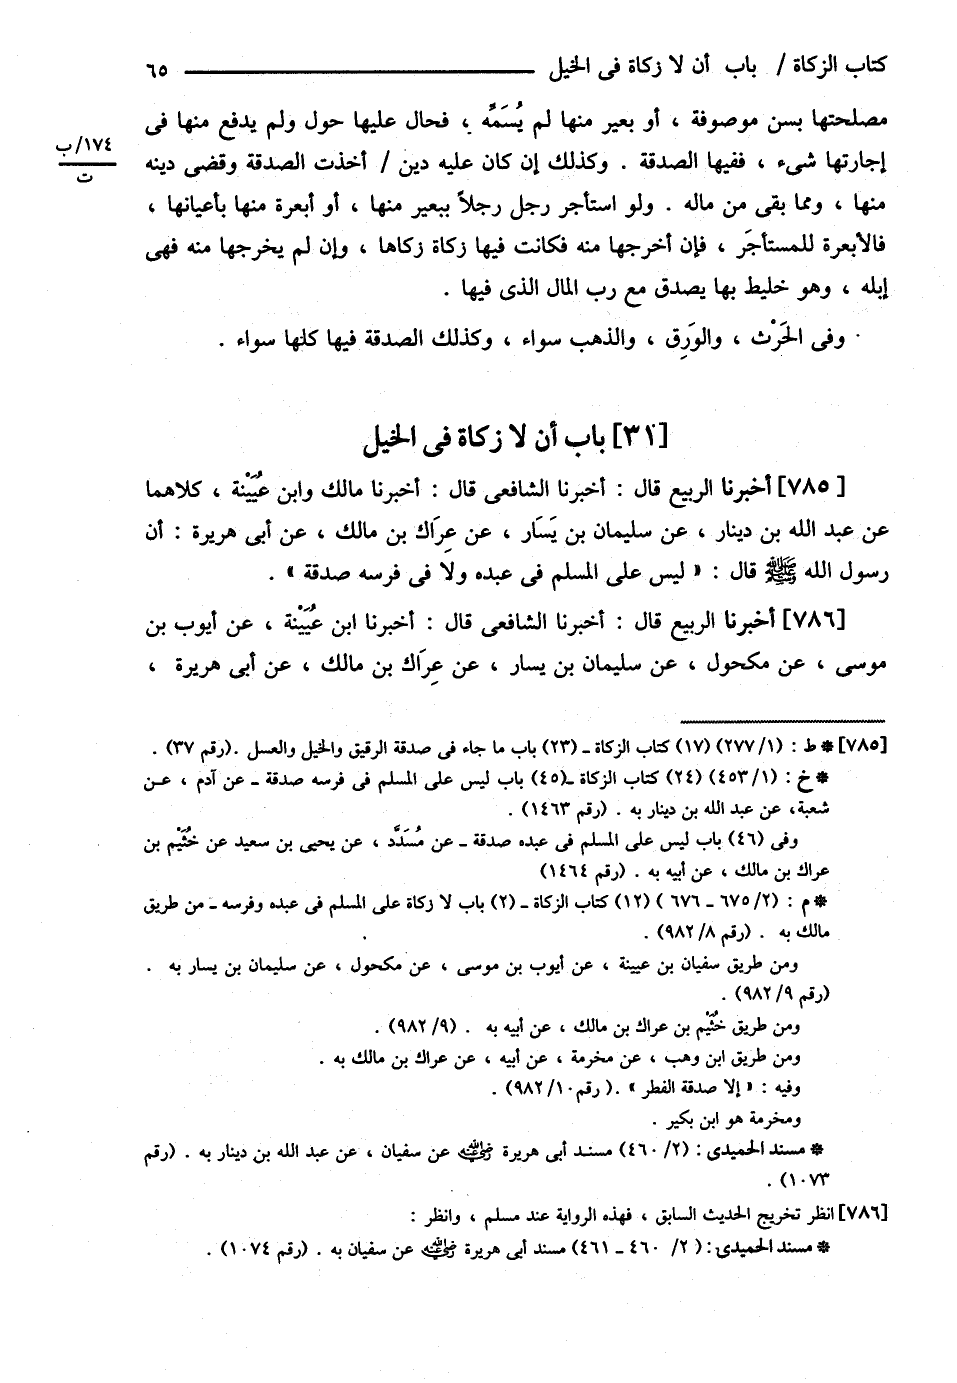 كتاب الزكاة / باب أن لا زكاة فى الخيل ــــــــــــــــ ٦٥
مصلحتها بسن موصوفة ، أو بعير منها لم يُسَمِّه ، فحال عليها حول ولم يدفع منها فى
١٧٤/ب
ت
إجارتها شىء ، ففيها الصدقة . وكذلك إن كان عليه دين / أخذت الصدقة وقضى دينه
منها ، ومما بقى من ماله . ولو استأجر رجل رجلاً ببعير منها ، أو أبعرة منها بأعيانها ،
فالأبعرة للمستأجَر ، فإن أخرجها منه فكانت فيها زكاة زكاها ، وإن لم يخرجها منه فهى
إبله ، وهو خليط بها يصدق مع رب المال الذى فيها .
وفى الحَرْث ، والوَرِق ، والذهب سواء ، وكذلك الصدقة فيها كلها سواء .
[٣١] باب أن لا زكاة فى الخيل
[٧٨٥] أخبرنا الربيع قال : أخبرنا الشافعى قال : أخبرنا مالك وابن عُيَيْنة ، كلاهما
عن عبد الله بن دينار ، عن سليمان بن يَسَار ، عن عِرَاك بن مالك ، عن أبى هريرة : أن
رسول الله ﷺ قال : « ليس على المسلم فى عبده ولا فى فرسه صدقة » .
[٧٨٦] أخبرنا الربيع قال : أخبرنا الشافعى قال : أخبرنا ابن عُيَيْنة ، عن أيوب بن
موسى ، عن مكحول ، عن سليمان بن يسار ، عن عِرَاك بن مالك ، عن أبى هريرة ،
[٧٨٥] * ط : (١/ ٢٧٧) (١٧) كتاب الزكاة ـ (٢٣) باب ما جاء فى صدقة الرقيق والخيل والعسل .(رقم ٣٧) .
* خ : (١/ ٤٥٣) (٢٤) كتاب الزكاة ـ(٤٥) باب ليس على المسلم فى فرسه صدقة ـ عن آدم ، عن
شعبة، عن عبد الله بن دينار به . (رقم ١٤٦٣) .
وفى (٤٦) باب ليس على المسلم فى عبده صدقة ـ عن مُسَدَّد ، عن يحيى بن سعيد عن خُثَيْم بن
عراك بن مالك ، عن أبيه به . (رقم ١٤٦٤)
* م : (٢/ ٦٧٥ ـ ٦٧٦ ) (١٢) كتاب الزكاة ـ (٢) باب لا زكاة على المسلم فى عبده وفرسه ـ من طريق
مالك به . (رقم ٨/ ٩٨٢) .
ومن طريق سفيان بن عيينة ، عن أيوب بن موسى ، عن مكحول ، عن سليمان بن يسار به .
(رقم ٩/ ٩٨٢) .
ومن طريق خُثَيْم بن عراك بن مالك ، عن أبيه به . (٩/ ٩٨٢) .
ومن طريق ابن وهب ، عن مخرمة ، عن أبيه ، عن عراك بن مالك به .
وفيه : « إلا صدقة الفطر » .( رقم١٠/ ٩٨٢) .
ومخرمة هو ابن بكير .
* مسند الحميدى : (٢/ ٤٦٠) مسند أبى هريرة رضي الله عنه عن سفيان ، عن عبد الله بن دينار به . (رقم
١٠٧٣) .
[٧٨٦] انظر تخريج الحديث السابق ، فهذه الرواية عند مسلم ، وانظر :
* مسند الحميدى : ( ٢/ ٤٦٠ ـ ٤٦١) مسند أبى هريرة رضي الله عنه عن سفيان به . (رقم ١٠٧٤) .